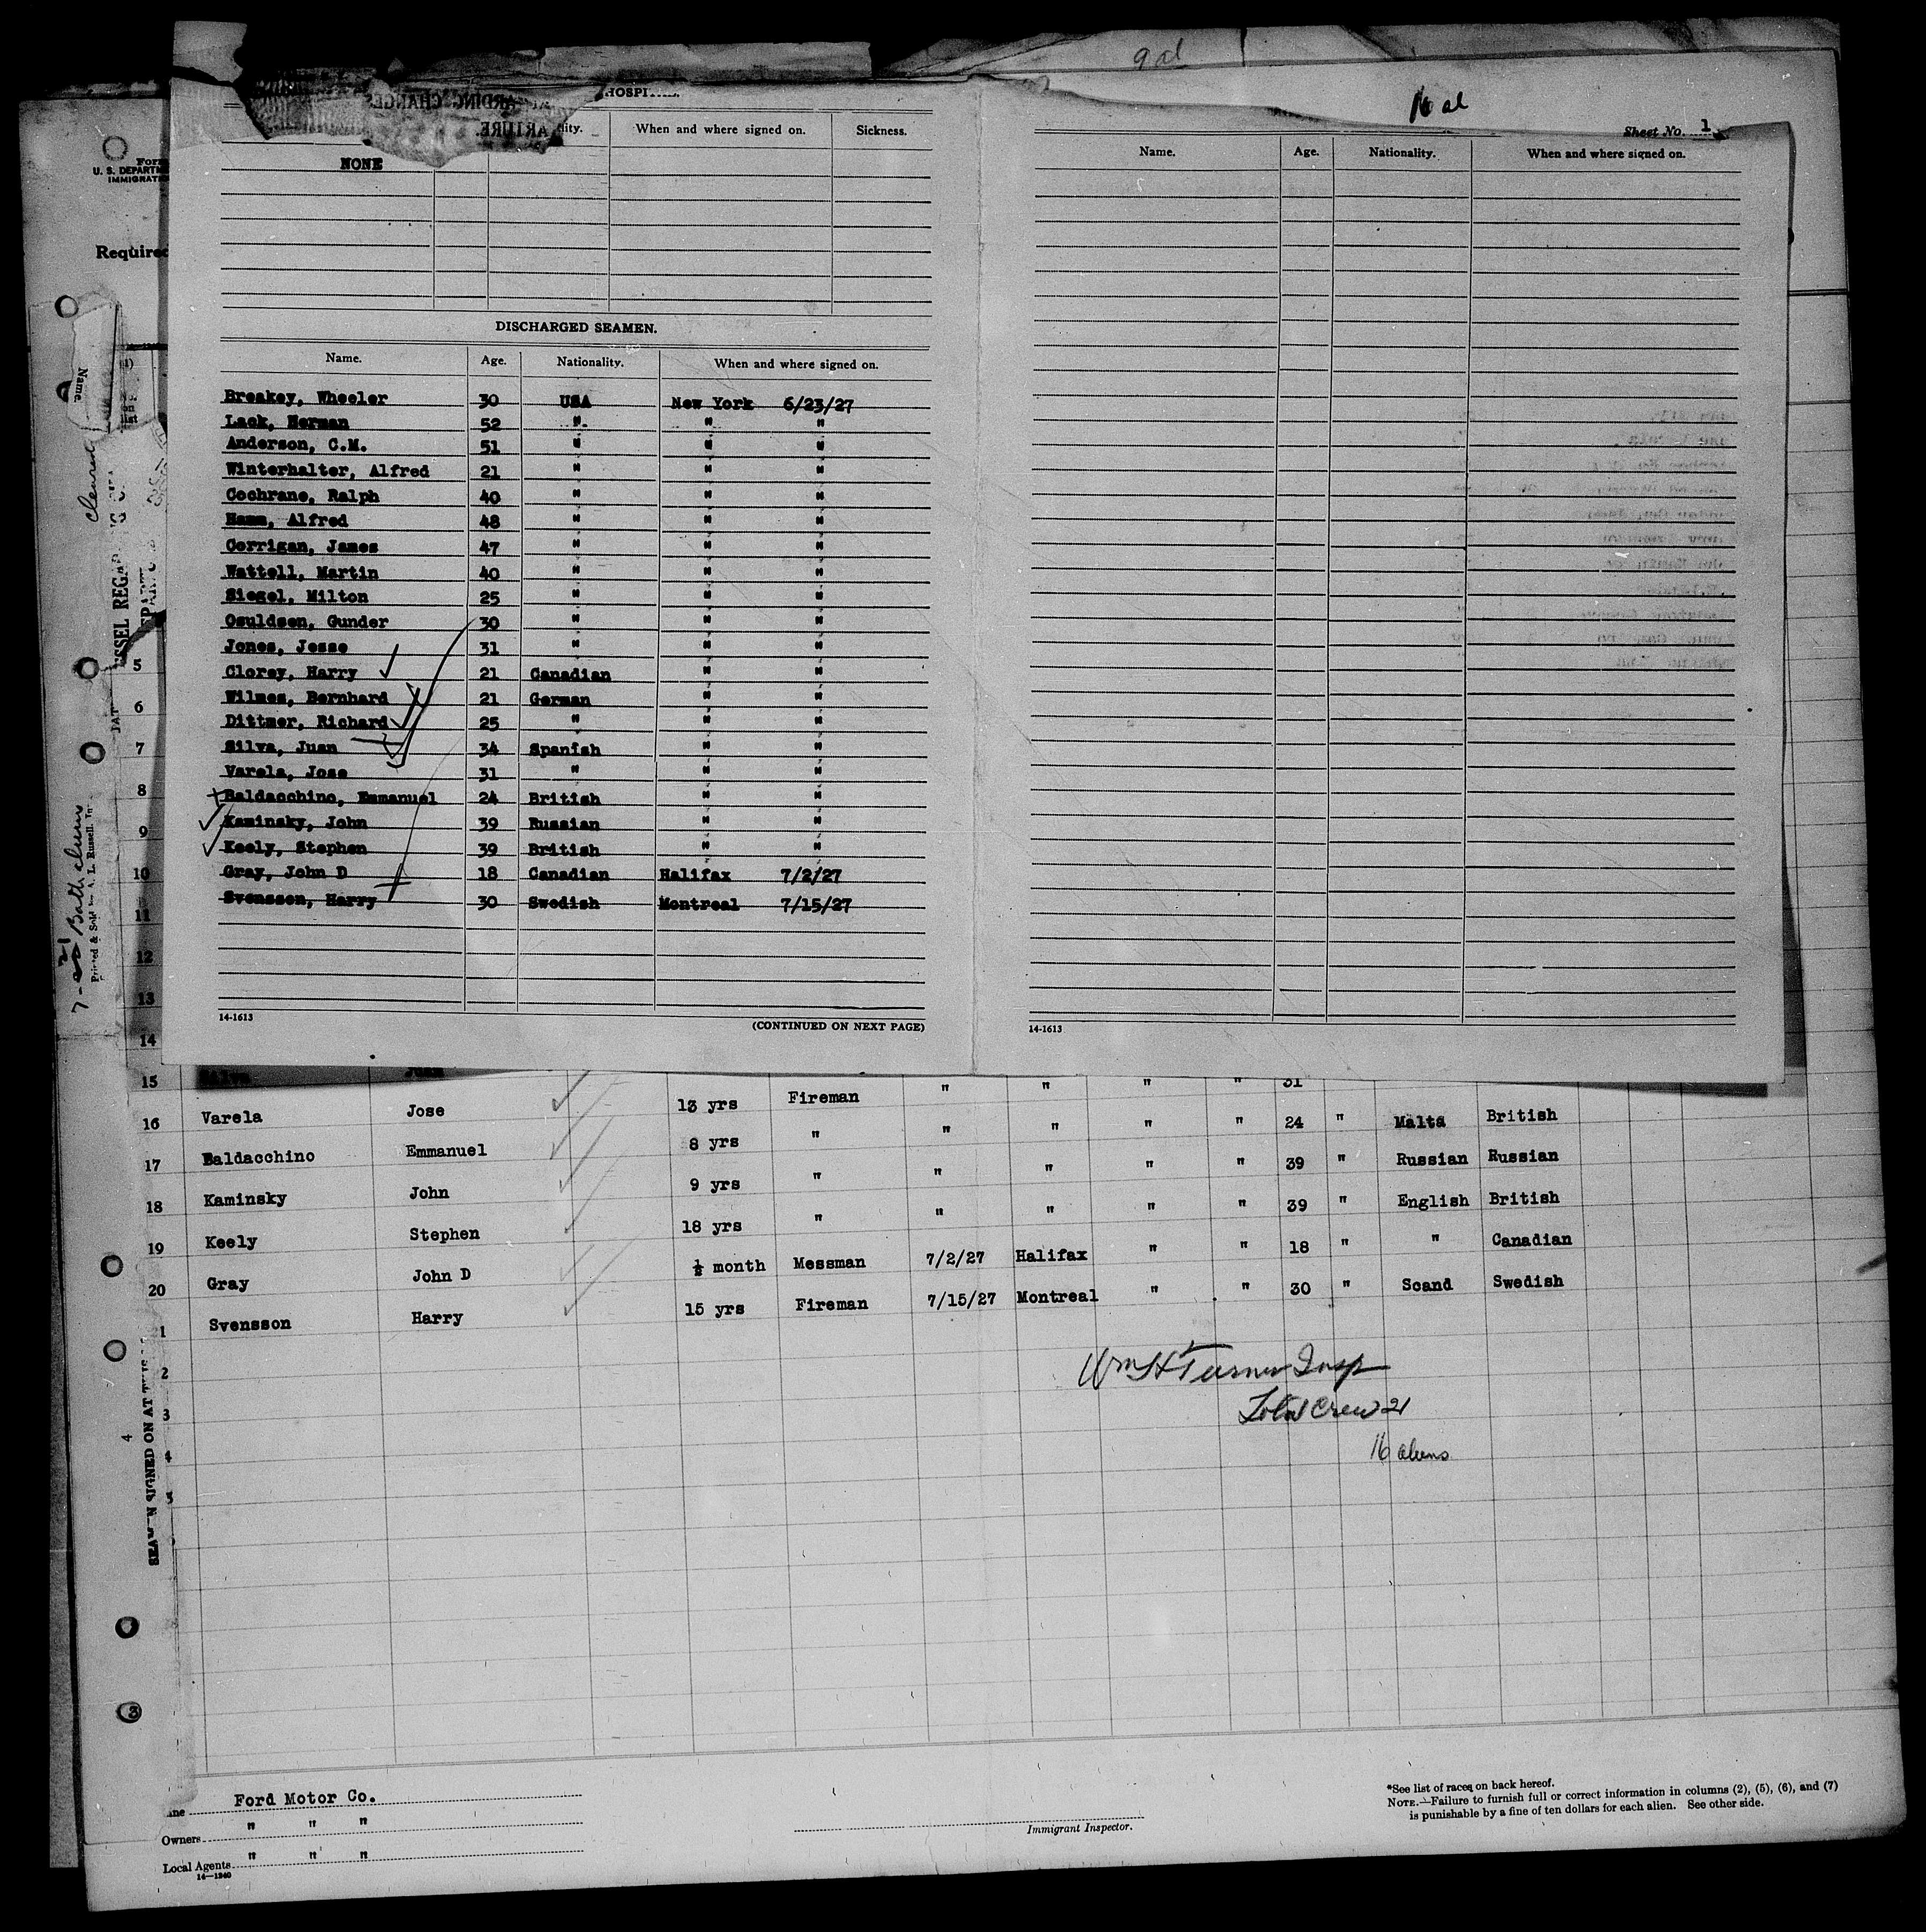 9 al
16 al
Sheet No. 1
HOSPI
ARDING CHANGES
ARTURE.
lity. When and where signed on. Sickness.
NONE
DISCHARGED SEAMEN.
Name. Age. Nationality. When and where signed on.
Breakey, Wheeler 30 USA New York 6/23/27
Lack, Herman 52 " " "
Anderson, C.M. 51 " " "
Winterhalter, Alfred 21 " " "
Cochrane, Ralph 40 " " "
Hamm, Alfred 48 " " "
Corrigan, James 47 " " "
Wattell, Martin 40 " " "
Siegel, Milton 25 " " "
Osuldsen, Gunder 30 " " "
Jones, Jesse 31 " " "
Clorey, Harry 21 Canadian " "
Wilmes, Bernhard 21 German " "
Dittmer, Richard 25 " " "
Silva, Juan 34 Spanish " "
Varela, Jose 31 " " "
Baldacchino, Emmanuel 24 British " "
Kaminsky, John 39 Russian " "
Keely, Stephen 39 British " "
Gray, John D 18 Canadian Halifax 7/2/27
Svensson, Harry 30 Swedish Montreal 7/15/27
14-1613
(CONTINUED ON NEXT PAGE)
Name. Age. Nationality. When and where signed on.
14-1613
Form
U. S. DEPARTM
IMMIGRATI
Required
Name.
5
6
7
8
9
10
11
12
13
14
15 Silva Juan " " " " 31
16 Varela Jose 13 yrs Fireman " " " " 24 " Malta British
17 Baldacchino Emmanuel 8 yrs " " " " " 39 " Russian Russian
18 Kaminsky John 9 yrs " " " " " 39 " English British
19 Keely Stephen 18 yrs " 7/2/27 Halifax " " 18 " " Canadian
20 Gray John D ½ month Messman 7/15/27 Montreal " " 30 " Scand Swedish
1 Svensson Harry 15 yrs Fireman
2
3
4
5
Wm H Turner Insp
Total Crew 21
16 aliens
SEAMEN SIGNED ON AT THIS
4
3
Ford Motor Co.
Owners " " "
Local Agents " " "
14-1240
Immigrant Inspector.
*See list of races on back hereof.
NOTE.—Failure to furnish full or correct information in columns (2), (5), (6), and (7)
is punishable by a fine of ten dollars for each alien. See other side.